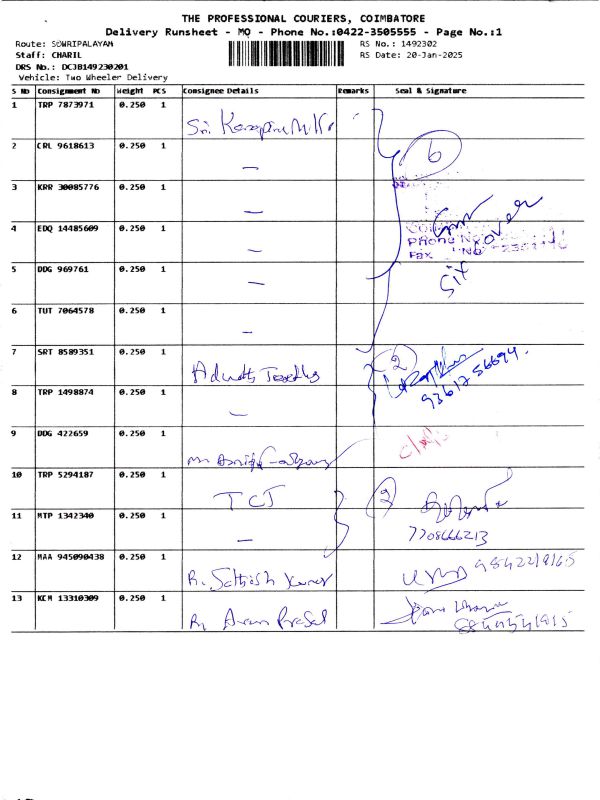 THE PROFESSIONAL COURIERS, COIMBATORE
Delivery Runsheet - MQ - Phone No.:0422-3505555 - Page No.:1
Route: SOWRIPALAYAM RS No.: 1492302
Staff: CHARIL RS Date: 20-Jan-2025
DRS No.: DCJB149230201
Vehicle: Two Wheeler Delivery
S No Consignment No Weight PCS Consignee Details Remarks Seal & Signature
1 TRP 7873971 0.250 1 Sri
2 CRL 9618613 0.250 1 — 6
3 KRR 30085776 0.250 1 —
4 EDQ 14485609 0.250 1 — Phone No
Fax No
5 DDG 969761 0.250 1 — Six over
6 TUT 7064578 0.250 1 —
7 SRT 8589351 0.250 1 2
8 TRP 1498874 0.250 1 — 93617 56694
9 DDG 422659 0.250 1
10 TRP 5294187 0.250 1 TCI 2
11 MTP 1342340 0.250 1 — 7708666213
12 MAA 945090438 0.250 1 R. Sathish Kumar
13 KCM 13310309 0.250 1 Arun Prasad